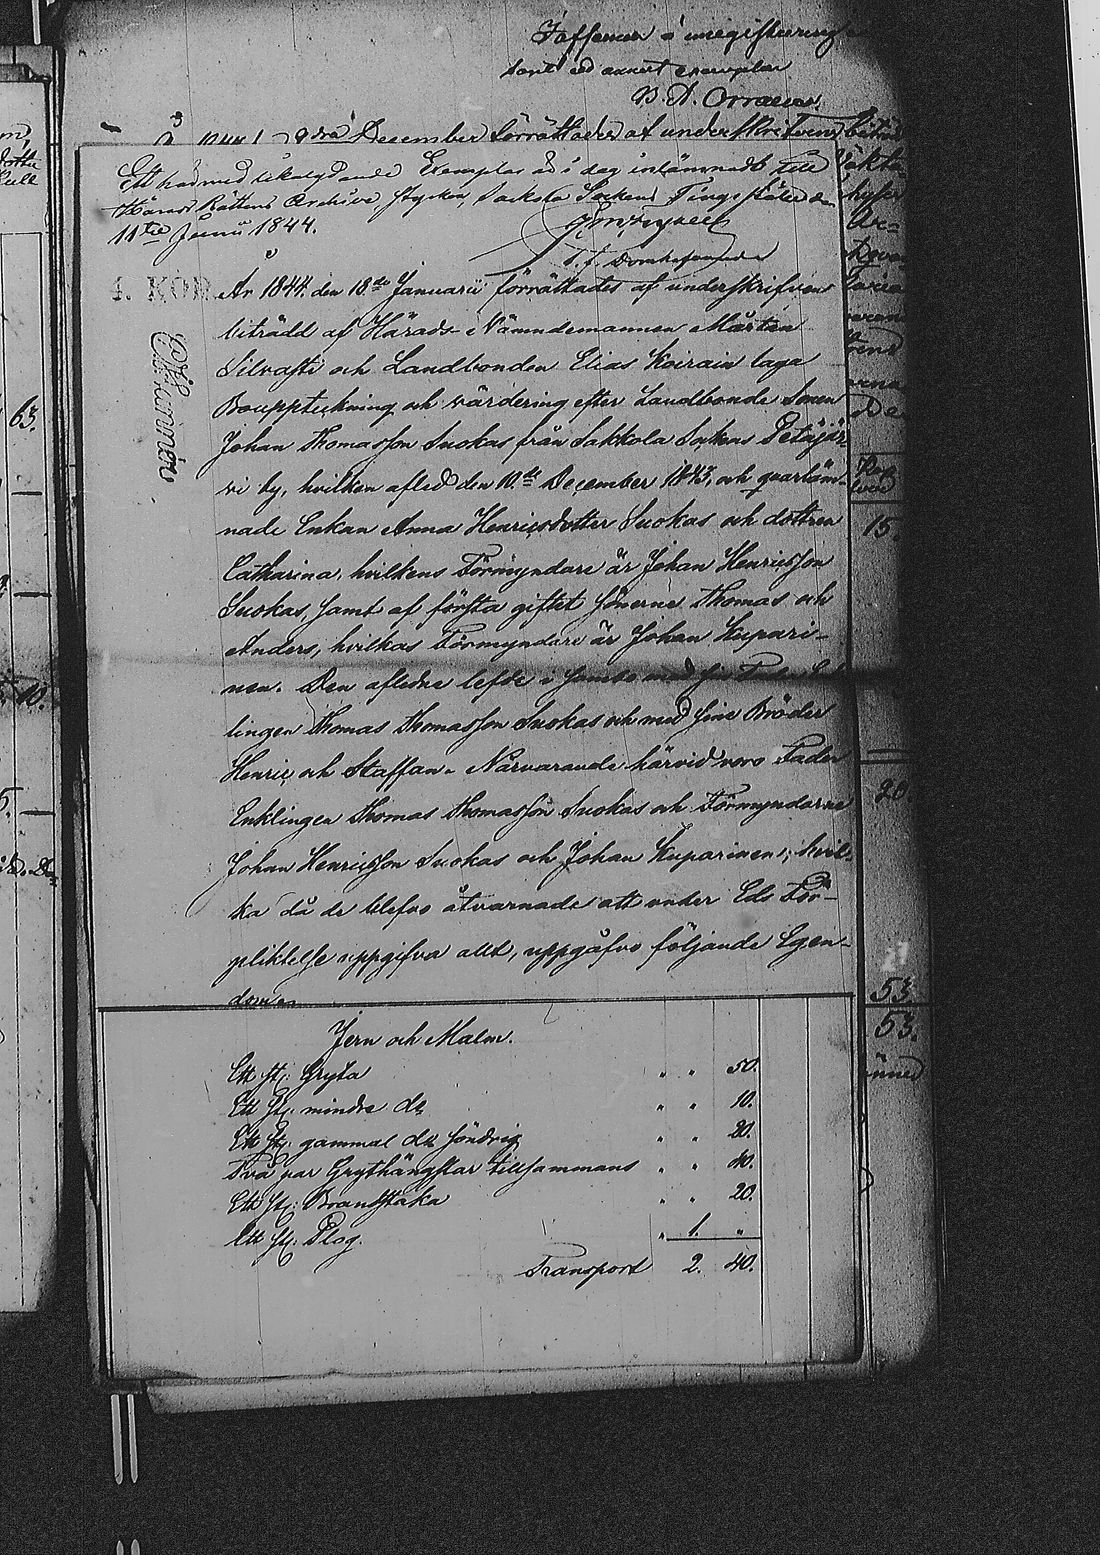 B. A. Orraeus
2dra December förrättades af underskrifven
Ett härmed likalydande Exemplar är i dag inlämnadt till
Härads Rättens Archive stycken, Sakkola Sockens Tingställe den
11te Junii 1844.
T. f. Domhafvande
4. KOD.
År 1844 den 18de Januarii förrättades af underskrifven
biträdd af Härads-Nämndemannen Mårten
Silvasti och Landbonden Elias Koirain laga
Bouppteckning och värdering efter Landbonde Sonen
Johan Thomasson Suokas från Sakkola Sockens Petäjär-
vi by, hvilken afled den 10de December 1843, och qvarläm-
nade Enkan Anna Henricsdotter Suokas och dottren
Catharina, hvilkens Förmyndare är Johan Henricsson
Suokas, samt af första giftet sönerne Thomas och
Anders, hvilkas Förmyndare är Johan Kupari-
nen. Den aflidne lefde i sambo med sin Fader Enk-
lingen Thomas Thomasson Suokas och med sine Bröder
Henric och Staffan. Närvarande härvid voro Fader
Enklingen Thomas Thomasson Suokas och Förmyndarne
Johan Henricsson Suokas och Johan Kuparinen, hvil-
ka då de blefvo åtvarnade att under Eds För-
pliktelse uppgifva allt, uppgåfvo följande Egen-
dom
Jern och Malm.
Ett st. Gryta " " 50.
Ett st. mindre do " " 10.
Ett st. gammal do söndrig " " 20.
Två par Grythängslar tillsammans " " 40.
Ett st. Brandstaka " " 20.
Ett st. Plog. " 1. "
Transport 2. 40.
63.
10.
15.
20.
53.
53.